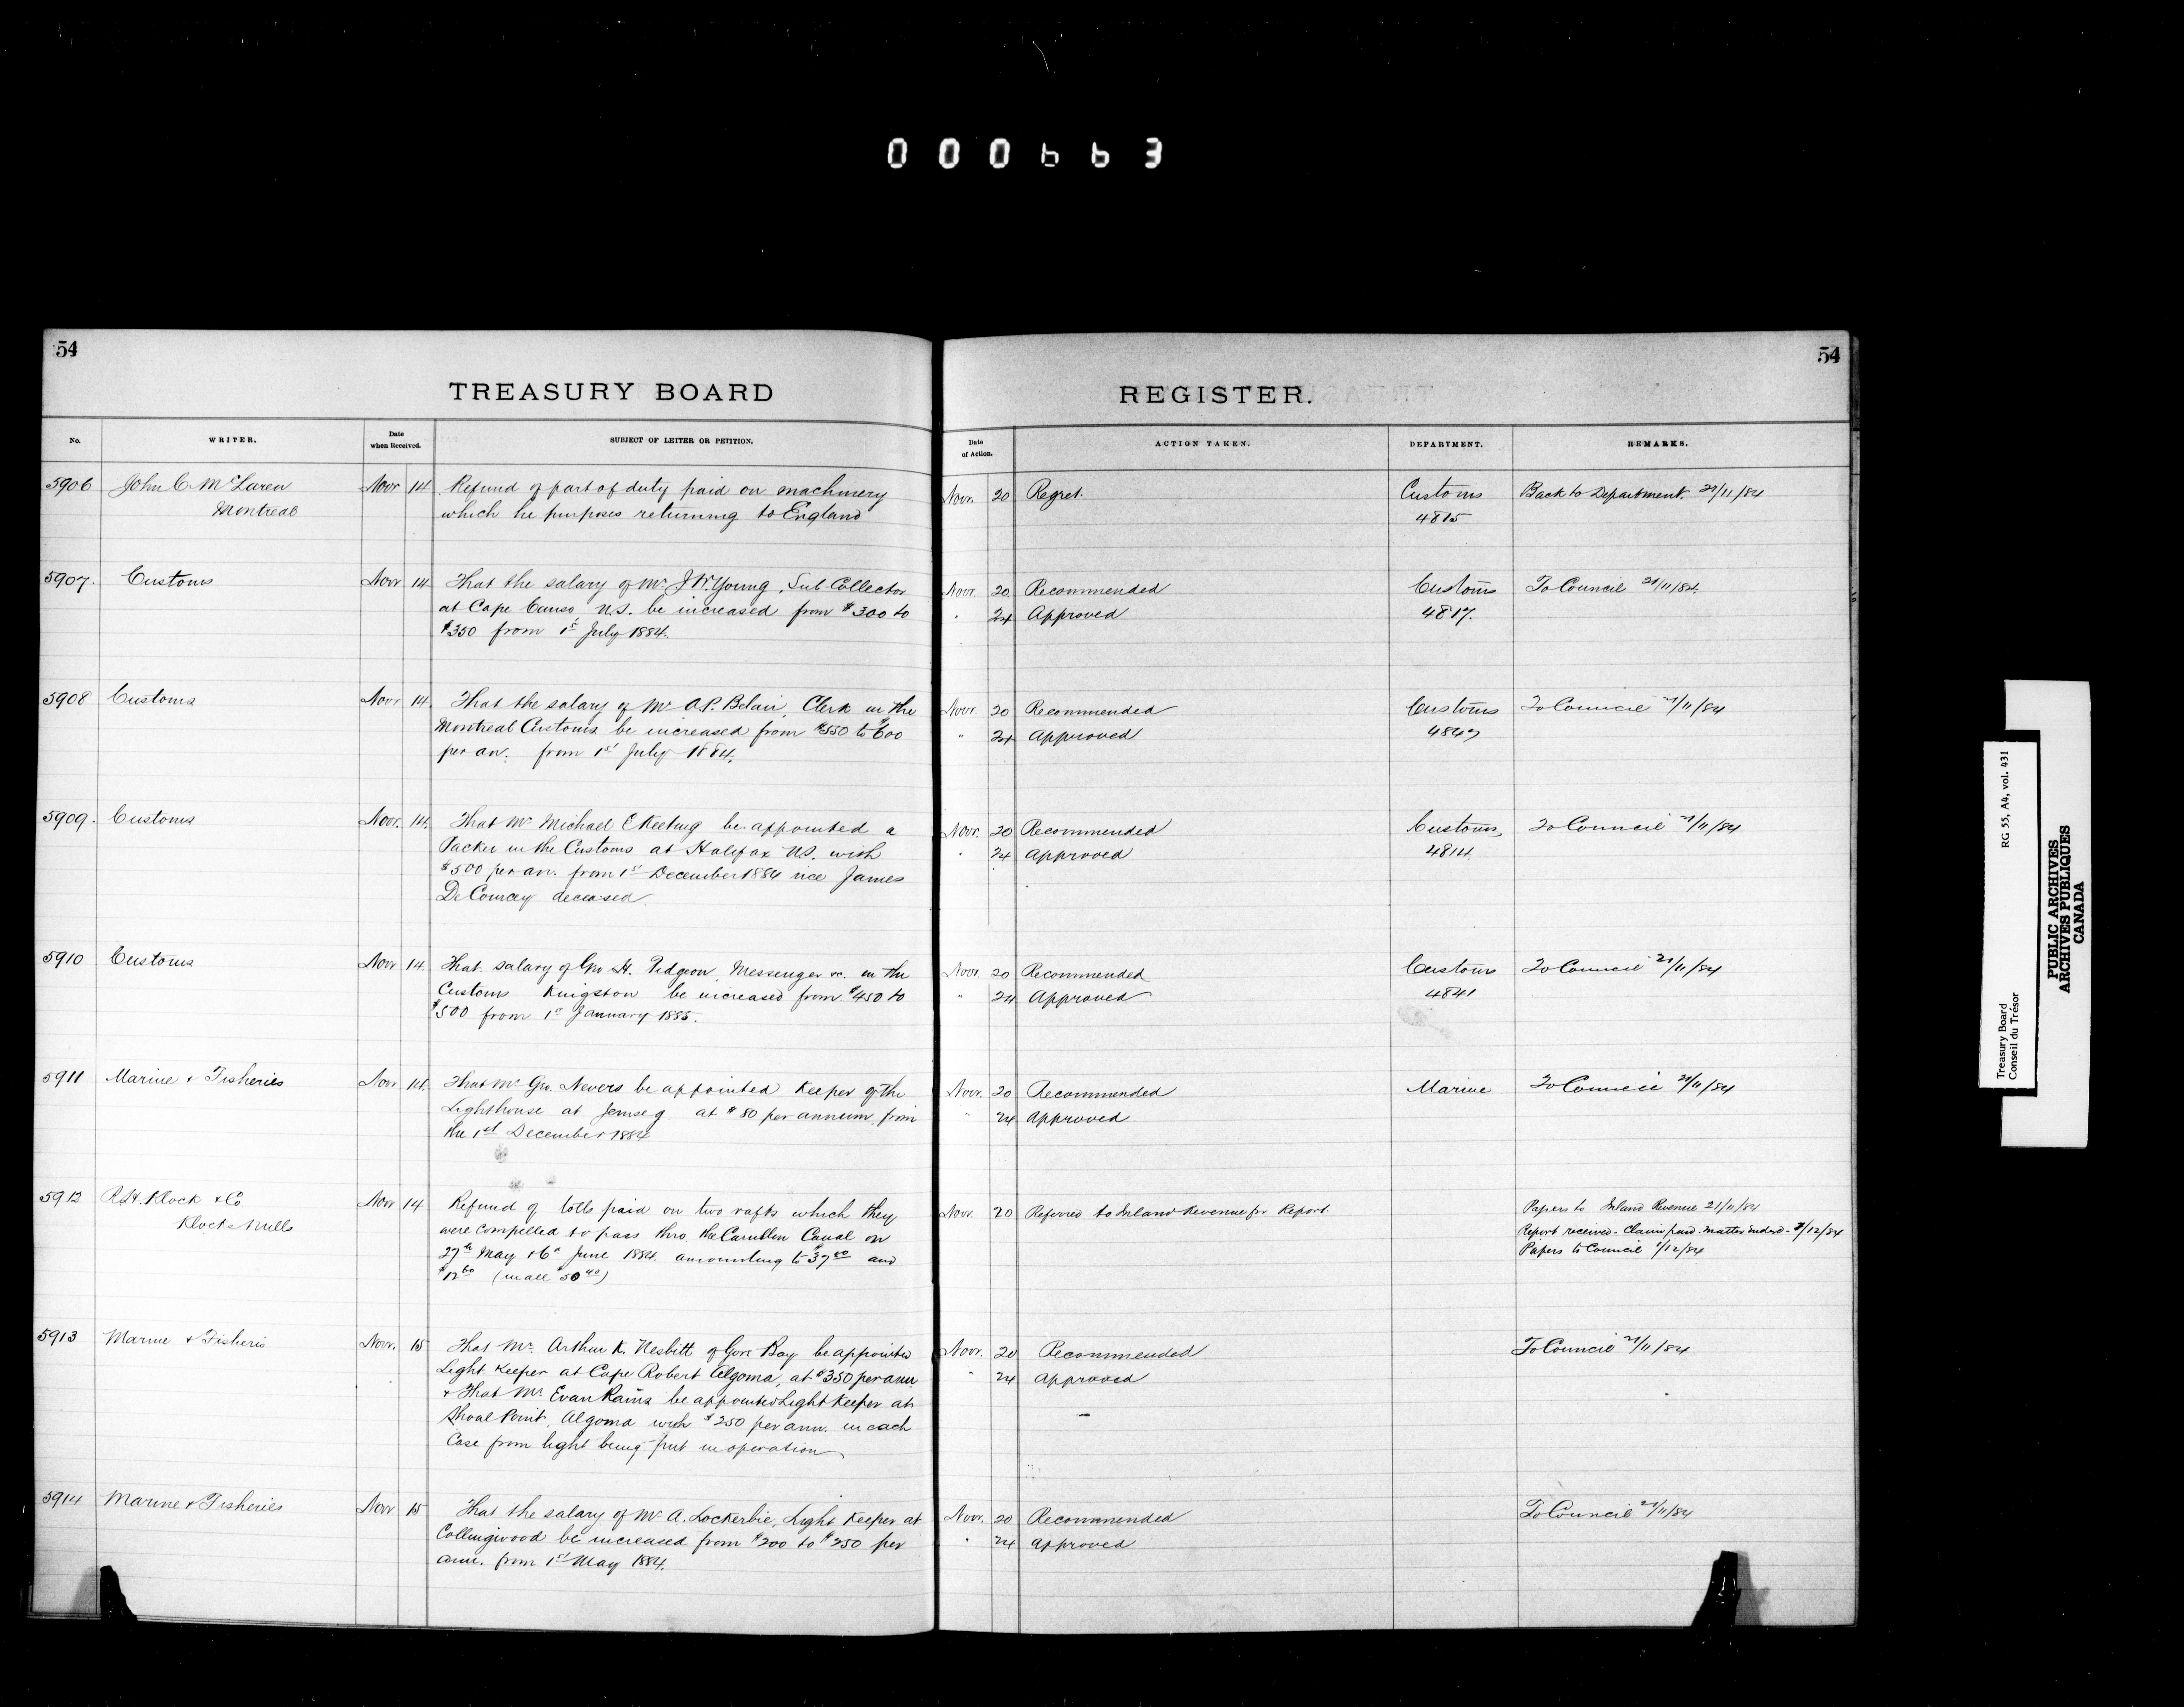 000663
54
54
TREASURY BOARD
REGISTER.
No.
WRITER.
Date
when Received.
SUBJECT OF LETTER OR PETITION.
Date
of Action.
ACTION TAKEN.
DEPARTMENT.
REMARKS.
5906 John C. McLaren Novr 14 Refund of part of duty paid on machinery Novr. 20 Regret. Customs Back to Department 21/11/84
Montreal which he purposes returning to England 4815
5907. Customs Novr 14 That the salary of Mr. J. W. Young, Sub Collector Novr. 20 Recommended Customs To Council 21/11/84.
at Cape Canso N.S. be increased from $300 to " 24 Approved 4817.
$350 from 1st July 1884.
5908 Customs Novr 14. That the salary of Mr A.P. Belair, Clerk in the Novr. 20 Recommended Customs To Council 21/11/84
Montreal Customs be increased from $550 to $600 " 24 Approved 4847
per an. from 1st July 1884.
5909. Customs Novr. 14. That Mr Michael C Keeting be appointed a Novr. 20 Recommended Customs To Council 21/11/84
Packer in the Customs at Halifax N.S. with " 24 Approved 4814.
$500 per an. from 1st December 1884 vice James
DeCourcey deceased.
5910 Customs Novr 14. That salary of Geo H. Pidgeon, Messenger &c. in the Novr. 20 Recommended Customs To Council 21/11/84
Customs Kingston be increased from $450 to " 24 Approved 4841
$500 from 1st January 1885.
5911 Marine & Fisheries Novr 14. That Mr Geo. Nevers be appointed Keeper of the Novr. 20 Recommended Marine To Council 21/11/84
Lighthouse at Jemseg at $80 per annum from " 24 Approved
the 1st December 1884
5912 R.H. Klock & Co Novr 14 Refund of tolls paid on two rafts which they Novr. 20 Referred to Inland Revenue for Report. Papers to Inland Revenue 21/11/84
Klocks Mills were compelled to pass thro. the Carillon Canal on Report received - Claim paid - matter ended - /12/84
27th May & 6th June 1884. amounting to $37.80 and Papers to Council /12/84
$12.60 (in all $50.40)
5913 Marine & Fisheries Novr. 15 That Mr. Arthur K. Nesbitt of Gore Bay be appointed Novr. 20 Recommended To Council 21/11/84
Light Keeper at Cape Robert Algoma, at $350 per ann " 24 Approved
& That Mr Evan Rains be appointed Light Keeper at
Shoal Point, Algoma with $250 per ann. in each
Case from light being put in operation
5914 Marine & Fisheries Novr. 15 That the salary of Mr A. Lockerbie, Light Keeper at Novr. 20 Recommended To Council 21/11/84
Collingwood be increased from $200 to $250 per " 24 Approved
ann. from 1st May 1884.
Treasury Board RG 55, A4, vol. 431
Conseil du Trésor
PUBLIC ARCHIVES
ARCHIVES PUBLIQUES
CANADA